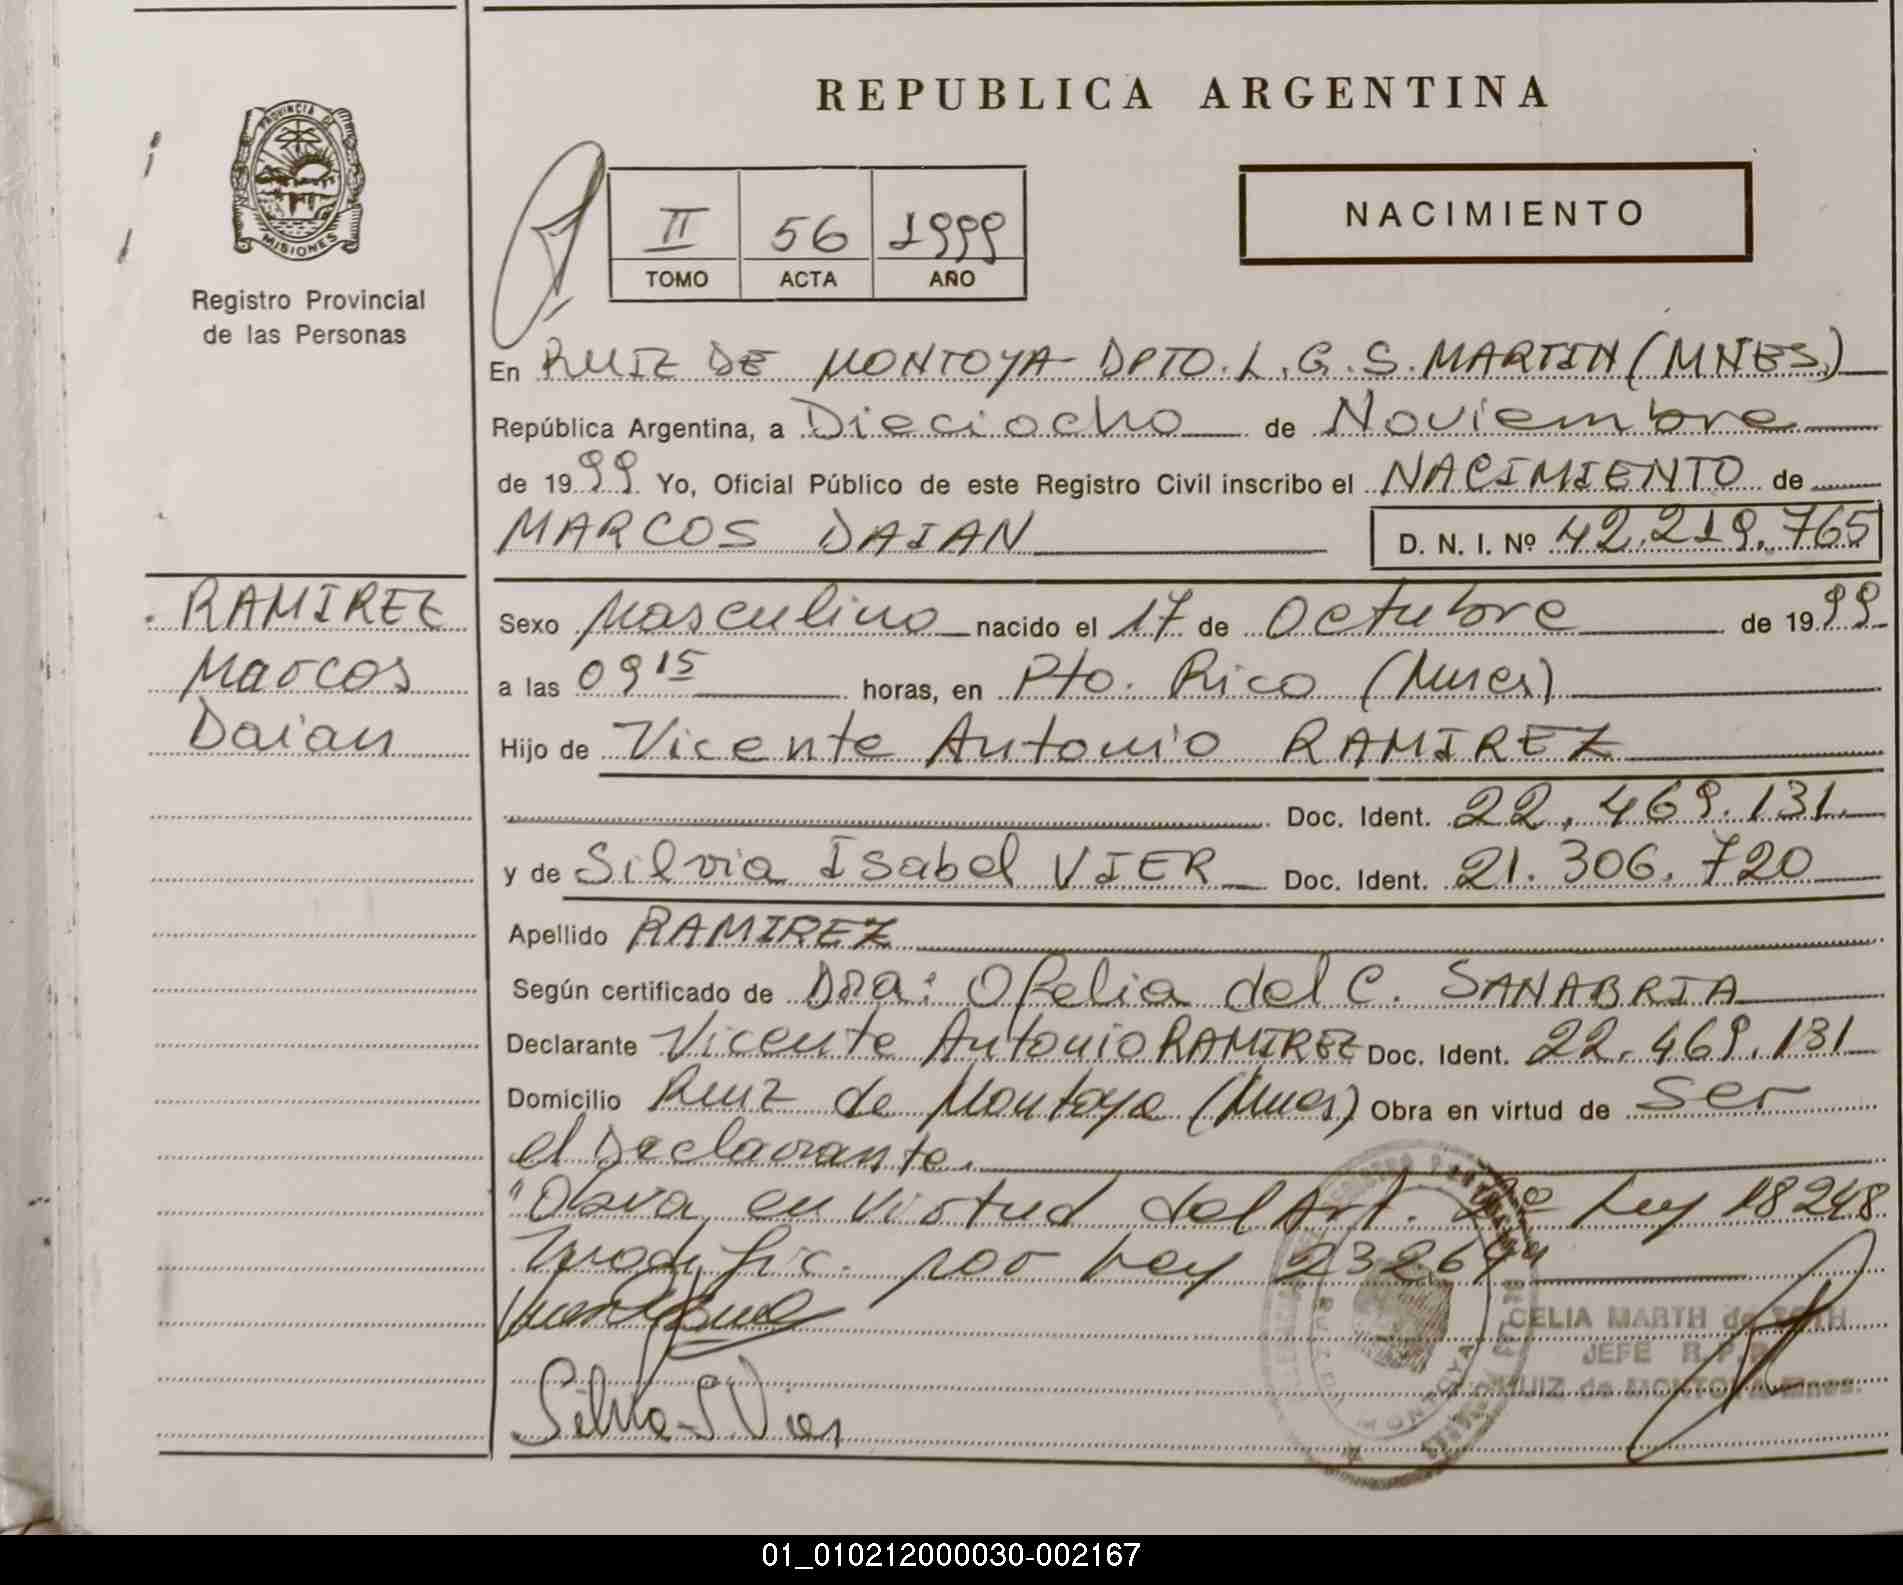 REPUBLICA ARGENTINA
PROVINCIA DE
MISIONES
Registro Provincial
de las Personas
II 56 1999
TOMO ACTA AÑO
NACIMIENTO
En RUIZ DE MONTOYA - DPTO. L. G. S. MARTIN (MNES)
República Argentina, a Dieciocho de Noviembre
de 1999 Yo, Oficial Público de este Registro Civil inscribo el NACIMIENTO de
MARCOS DAIAN D. N. I. Nº 42.219.765
RAMIREZ
Marcos
Daian
Sexo Masculino nacido el 17 de Octubre de 1999
a las 09 15 horas, en Pto. Rico (Mnes)
Hijo de Vicente Antonio RAMIREZ
Doc. Ident. 22.469.131
y de Silvia Isabel VIER Doc. Ident. 21.306.720
Apellido RAMIREZ
Según certificado de Dra: Ofelia del C. SANABRIA
Declarante Vicente Antonio RAMIREZ Doc. Ident. 22.469.131
Domicilio Ruiz de Montoya (Mnes) Obra en virtud de ser
el Declarante.
"Obra en virtud del Art. 2º Ley 18248
modific. por Ley 23264"
CELIA MARTH de
JEFE R.P.P.
RUIZ de MONTOYA Mnes.
Silvia I Vier
01_010212000030-002167